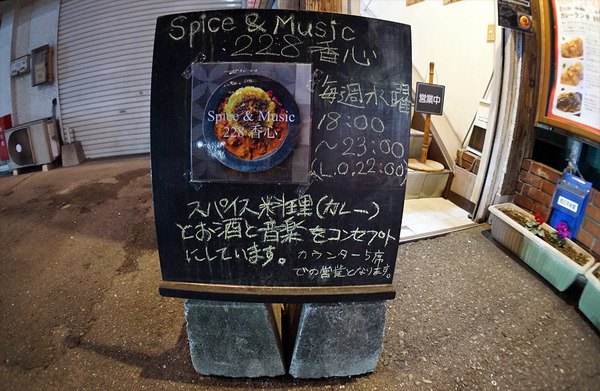 Spice & Music
228 香心
Spice & Music
228 香心
毎週水曜
18:00
～23:00
(L.O.22:00)
スパイス料理(カレー)
とお酒と音楽をコンセプト
にしています。カウンター5席
での営業となります。
営業中